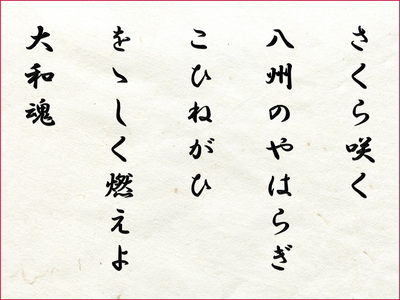 さくら咲く
八州のやはらぎ
こひねがひ
をゝしく燃えよ
大和魂